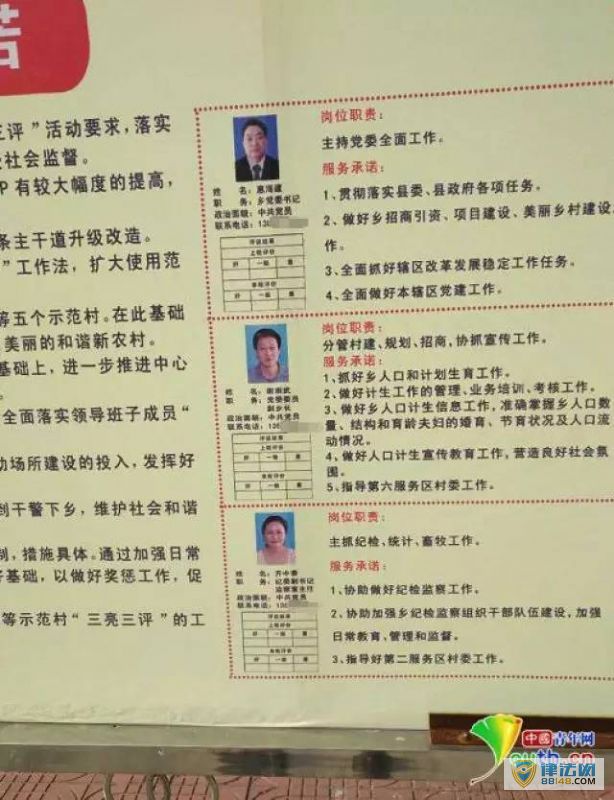 诺
三评”活动要求,落实
社会监督。
P有较大幅度的提高,
条主干道升级改造。
”工作法,扩大使用范
等五个示范村。在此基础
美丽的和谐新农村。
基础上,进一步推进中心
全面落实领导班子成员“
动场所建设的投入,发挥好
到干警下乡,维护社会和谐
制,措施具体。通过加强日常
好基础,以做好奖惩工作,促
等示范村“三亮三评”的工
岗位职责:
主持党委全面工作。
服务承诺:
1、贯彻落实县委、县政府各项任务。
2、做好乡招商引资、项目建设、美丽乡村建设
作。
3、全面抓好辖区改革发展稳定工作任务。
4、全面做好本辖区党建工作。
姓 名:惠海疆
职 务:乡党委书记
政治面貌:中共党员
联系电话:13
评议结果
上级评价
好 一般 差
岗位职责:
分管村建、规划、招商,协抓宣传工作。
服务承诺:
1、抓好乡人口和计划生育工作。
2、做好计生工作的管理、业务培训、考核工作。
3、做好乡人口计生信息工作,准确掌握乡人口数
量、结构和育龄夫妇的婚育、节育状况及人口流
动情况。
4、做好人口计生宣传教育工作,营造良好社会氛
围。
5、指导第六服务区村委工作。
姓 名:
职 务:党委委员
副乡长
政治面貌:中共党员
联系电话:13
评议结果
上级评价
好 一般 差
岗位职责:
主抓纪检、统计、畜牧工作。
服务承诺:
1、协助做好纪检监察工作。
2、协助加强乡纪检监察组织干部队伍建设,加强
日常教育、管理和监督。
3、指导好第二服务区村委工作。
姓 名:齐中委
职 务:纪委副书记
监察室主任
政治面貌:中共党员
联系电话:13
评议结果
上级评价
好 一般 差
中国青年网
youth.cn
律法网
88148.com